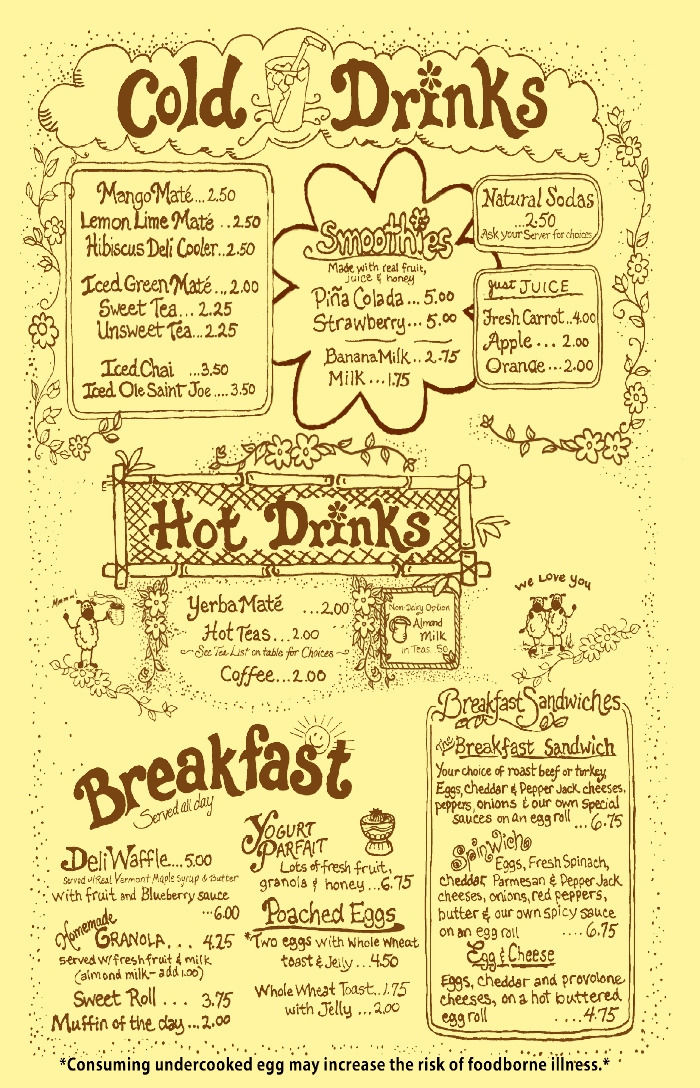 Cold Drinks
Mango Maté... 2.50
Lemon Lime Maté ..2.50
Hibiscus Deli Cooler..2.50
Iced Green Maté... 2.00
Sweet Tea... 2.25
Unsweet Tea...2.25
Iced Chai ...3.50
Iced Ole Saint Joe .... 3.50
Smoothies
Made with real fruit,
juice & honey
Piña Colada ... 5.00
Strawberry... 5.00
Banana Milk.. 2.75
Milk ...1.75
Natural Sodas
...2.50
Ask your Server for choices
just JUICE
Fresh Carrot..4.00
Apple ... 2.00
Orange ...2.00
Hot Drinks
Mmmm!
Yerba Maté ...2.00
Hot Teas...2.00
See Tea List on table for Choices
Coffee...2.00
Non-Dairy Option
Almond
Milk
in Teas .50
We Love You
Breakfast
Served all day
Deli Waffle... 5.00
Served w/Real Vermont Maple Syrup & Butter
with fruit and Blueberry sauce
...6.00
Homemade
Granola... 4.25
served w/fresh fruit & milk
(almond milk - add 1.00)
Sweet Roll ... 3.75
Muffin of the day...2.00
Yogurt
Parfait
Lots of fresh fruit,
granola & honey ...6.75
Poached Eggs
*Two eggs with whole wheat
toast & Jelly...4.50
Whole Wheat Toast..1.75
with Jelly ...2.00
Breakfast Sandwiches
The Breakfast Sandwich
Your choice of roast beef or turkey,
Eggs, cheddar & Pepper Jack cheeses,
peppers, onions & our own special
sauces on an egg roll ... 6.75
Spinwich
Eggs, Fresh Spinach,
cheddar, Parmesan & Pepper Jack
cheeses, onions, red peppers,
butter & our own spicy sauce
on an egg roll ....6.75
Egg & Cheese
Eggs, cheddar and provolone
cheeses, on a hot buttered
egg roll ....4.75
*Consuming undercooked egg may increase the risk of foodborne illness.*